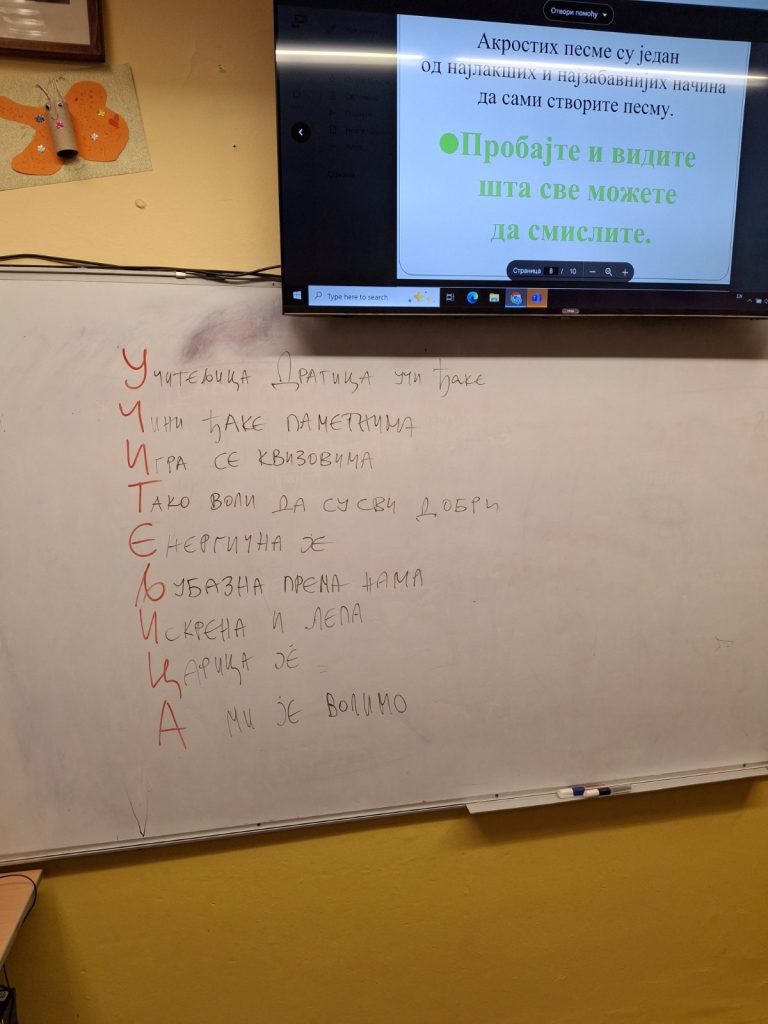 Отвори помоћу
Акростих песме су један
од најлакших и најзабавнијих начина
да сами створите песму.
Пробајте и видите
шта све можете
да смислите.
Страница 8 / 10
Type here to search
EN
УЧИТЕЉИЦА ДРАГИЦА УЧИ ЂАКЕ
ЧИНИ ЂАКЕ ПАМЕТНИМА
ИГРА СЕ КВИЗОВИМА
ТАКО ВОЛИ ДА СУ СВИ ДОБРИ
ЕНЕРГИЧНА ЈЕ
ЉУБАЗНА ПРЕМА НАМА
ИСКРЕНА И ЛЕПА
ЦАРИЦА ЈЕ
А МИ ЈЕ ВОЛИМО